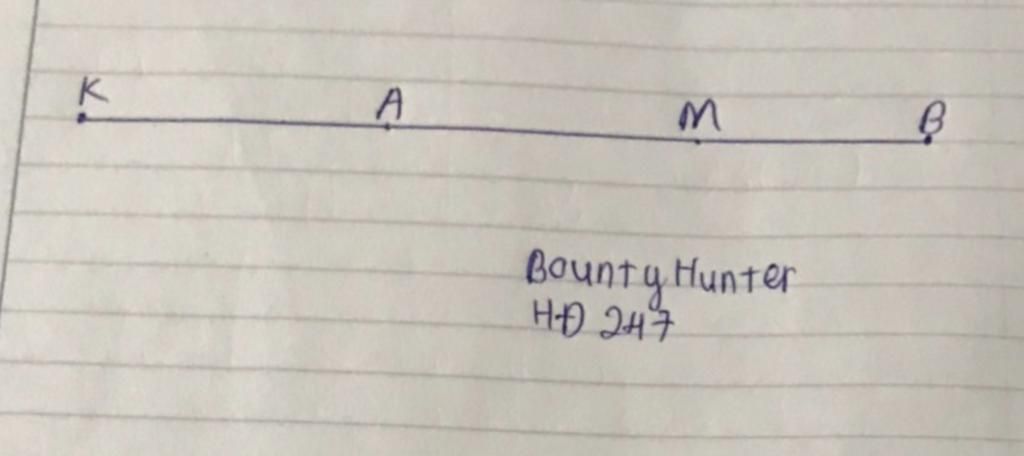 K A M B
Bounty Hunter
HĐ 247